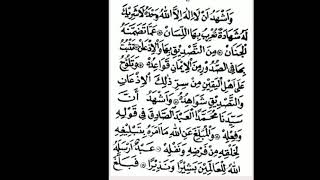 وَأَشْهَدُ أَنْ لَا إِلٰهَ إِلَّا اللهُ وَحْدَهُ لَا شَرِيْكَ
لَهُ شَهَادَةً تُعْرِبُ بِهَا اللِّسَانُ ۞ عَمَّا تَضَمَّنَهُ
الْجَنَانُ ۞ مِنَ التَّصْدِيْقِ بِهَا وَالْإِذْعَانِ ۞ تَثْبُتُ
بِهَا فِي الصُّدُوْرِ مِنَ الْإِيْمَانِ قَوَاعِدُهُ ۞ وَتَلُوْحُ
عَلَى أَهْلِ الْيَقِيْنِ مِنْ سِرِّ ذٰلِكَ الْإِذْعَانِ
وَالتَّصْدِيْقِ شَوَاهِدُهُ ۞ وَأَشْهَدُ أَنَّ
سَيِّدَنَا مُحَمَّدًا الْعَبْدُ الصَّادِقُ فِي قَوْلِهِ
وَفِعْلِهِ ۞ وَالْمُبَلِّغُ عَنِ اللهِ مَا أَمَرَهُ بِتَبْلِيْغِهِ
لِخَلْقِهِ مِنْ فَرْضِهِ وَنَفْلِهِ ۞ عَبْدٌ أَرْسَلَهُ
اللهُ لِلْعَالَمِيْنَ بَشِيْرًا وَنَذِيْرًا ۞ فَبَلَّغَ